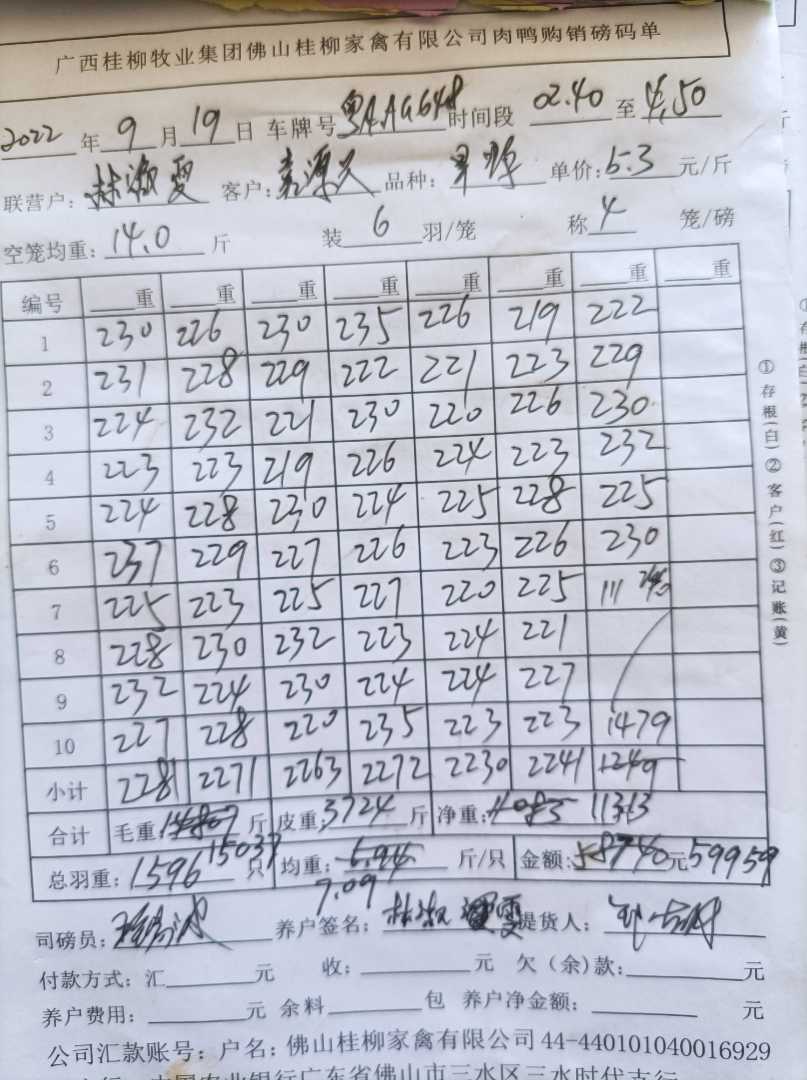 广西桂柳牧业集团佛山桂柳家禽有限公司肉鸭购销磅码单
2022 年 9 月 19 日 车牌号 粤AAG648 时间段 02.40 至 4.50
联营户: 林淑雯 客户: 品种: 单价: 5.3 元/斤
空笼均重: 14.0 斤 装 6 羽/笼 称 4 笼/磅
编号 重 重 重 重 重 重 重 重
1 230 226 230 235 226 219 222
2 231 228 229 222 221 223 229
3 224 232 221 230 220 226 230
4 223 223 219 226 224 223 232
5 224 228 230 224 225 228 225
6 237 229 227 226 223 226 230
7 225 223 225 227 220 225 111
8 228 230 232 223 224 221
9 232 224 230 224 224 227
10 227 228 220 235 223 223 1479
小计 2281 2271 2263 2272 2230 2241 1249
合计 毛重: 14807 斤 皮重: 3724 斤 净重: 11083 11313
总羽重: 1596 15037 只 均重: 6.94 斤/只 金额: 58740 元 59959
7.09
司磅员: 养户签名: 林淑雯 提货人:
付款方式: 汇 元 收: 元 欠(余)款: 元
养户费用: 元 余料 包 养户净金额: 元
公司汇款账号: 户名: 佛山桂柳家禽有限公司 44-440101040016929
中国农业银行广东省佛山市三水区三水时代支行
①存根(白)②客户(红)③记账(黄)